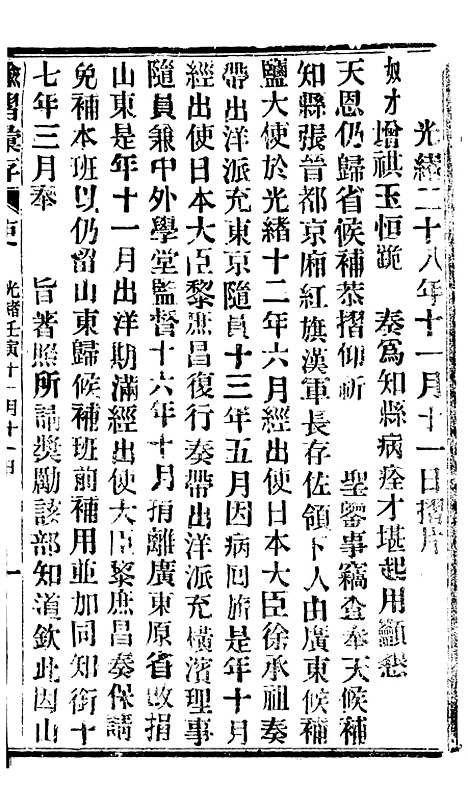 光緒二十八年十一月十一日摺片
奴才增祺玉恒跪 奏爲知縣病痊才堪起用籲懇
天恩仍歸省候補恭摺仰祈 聖鑒事竊查奉天候補
知縣張晉都京廂紅旗漢軍長存佐領下人由廣東候補
鹽大使於光緒十二年六月經出使日本大臣徐承祖奏
帶出洋派充東京隨員十三年五月因病回旂是年十月
經出使日本大臣黎庶昌復行奏帶出洋派充橫濱理事
隨員兼中外學堂監督十六年十月捐離廣東原省改捐
山東是年十一月出洋期滿經出使大臣黎庶昌奏保請
免補本班以仍留山東歸候補班前補用並加同知銜十
七年三月奉 旨著照所請奬勵該部知道欽此因山
光緒壬寅十一月十一日 一